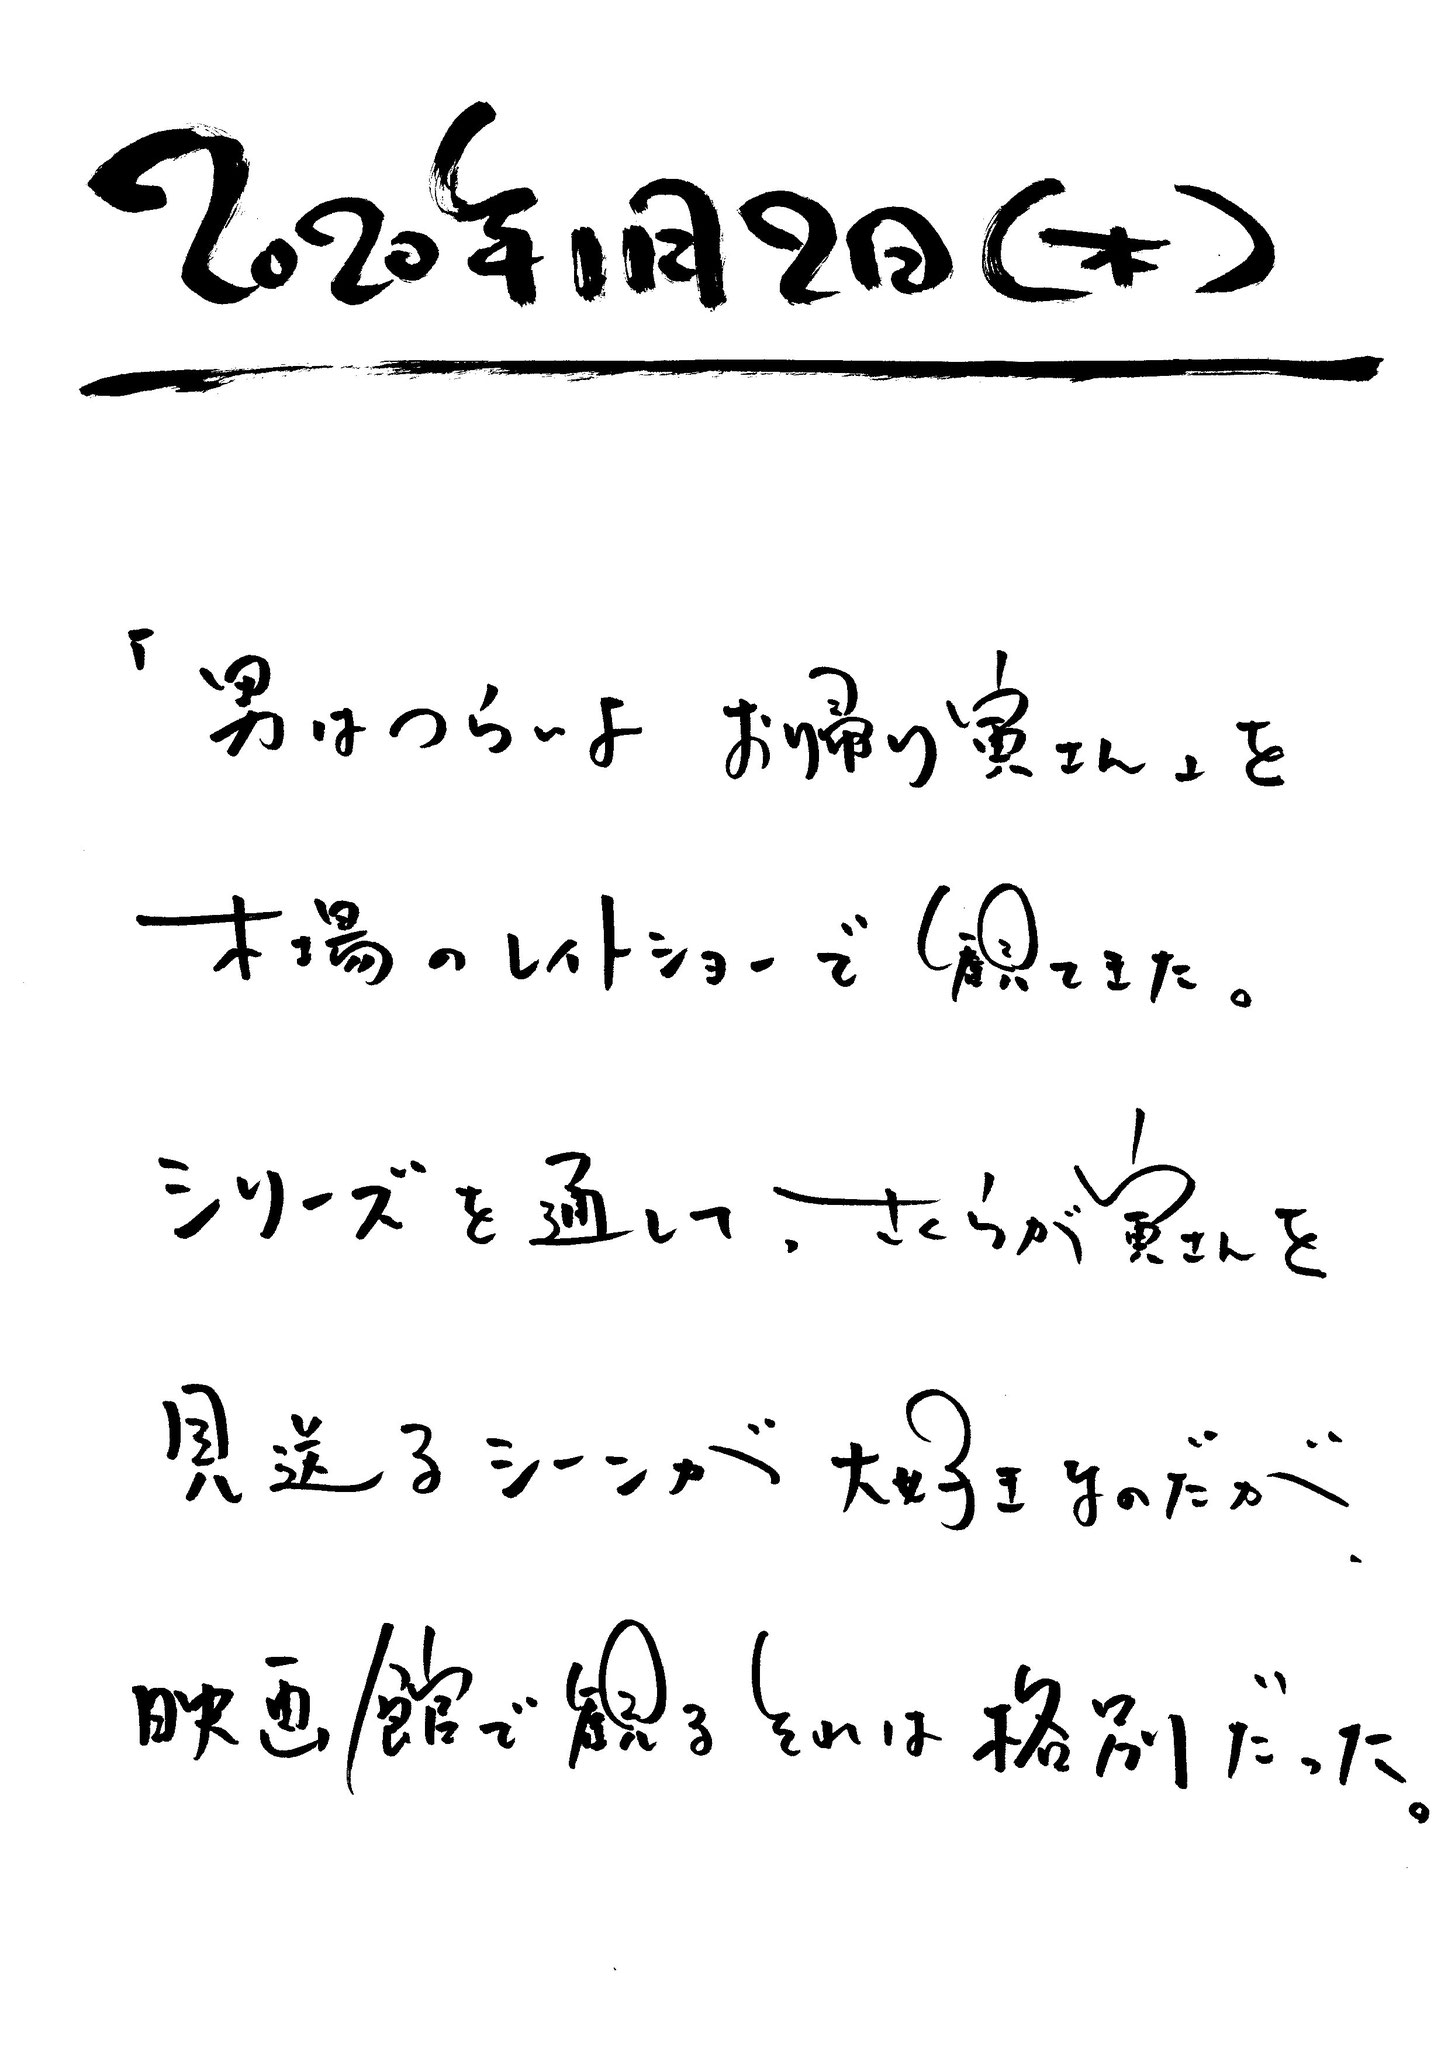 2020年1月2日(木)
「男はつらいよ お帰り寅さん」を
木場のレイトショーで観てきた。
シリーズを通して、さくらが寅さんを
見送るシーンが大好きなのだが、
映画館で観るそれは格別だった。